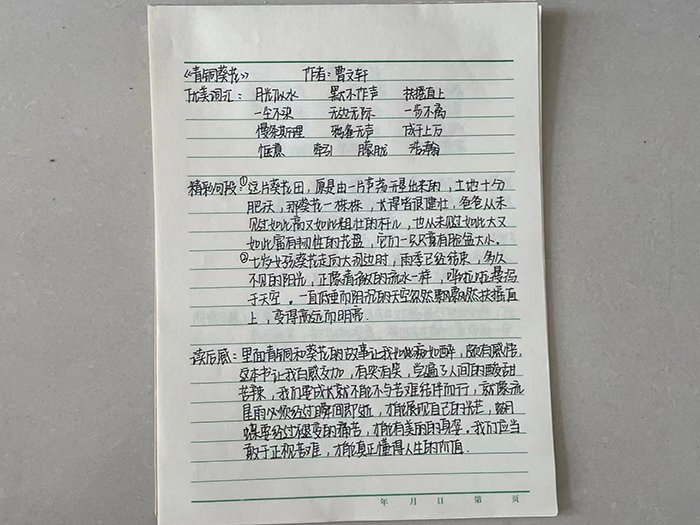 《青铜葵花》 作者:曹文轩
优美词汇: 月光似水 默不作声 扶摇直上
一尘不染 无边无际 一步不离
慢条斯理 鸦雀无声 成千上万
惬意 牵引 朦胧 浩瀚
精彩句段:①这片葵花田,原是由一片芦荡开垦出来的,土地十分
肥沃,那葵花一株株,长得皆很健壮,爸爸从未
见过如此高又如此粗壮的秆儿,也从未见过如此大又
如此富有韧性的花盘,它们一只只竟有脸盆大小。
②七岁女孩葵花走向大河边时,雨季已经结束,多久
不见的阳光,正像清澈的流水一样,哗啦啦漫泻
于天空。一直低垂而阴沉的天空忽然飘飘然扶摇直
上,变得高远而明亮.
读后感:里面青铜和葵花的故事让我如痴如醉,颇有感悟,
这本书让我百感交加,有哭有笑,尝遍了人间的酸甜
苦辣,我们要成长就不能不与苦难结伴而行,就像流
星雨必须经过瞬间即逝,才能展现自己的光芒,蝴
蝶要经过蜕变的痛苦,才能有美丽的身孕.我们应当
敢于正视苦难,才能真正懂得人生的价值.
年 月 日 第 页